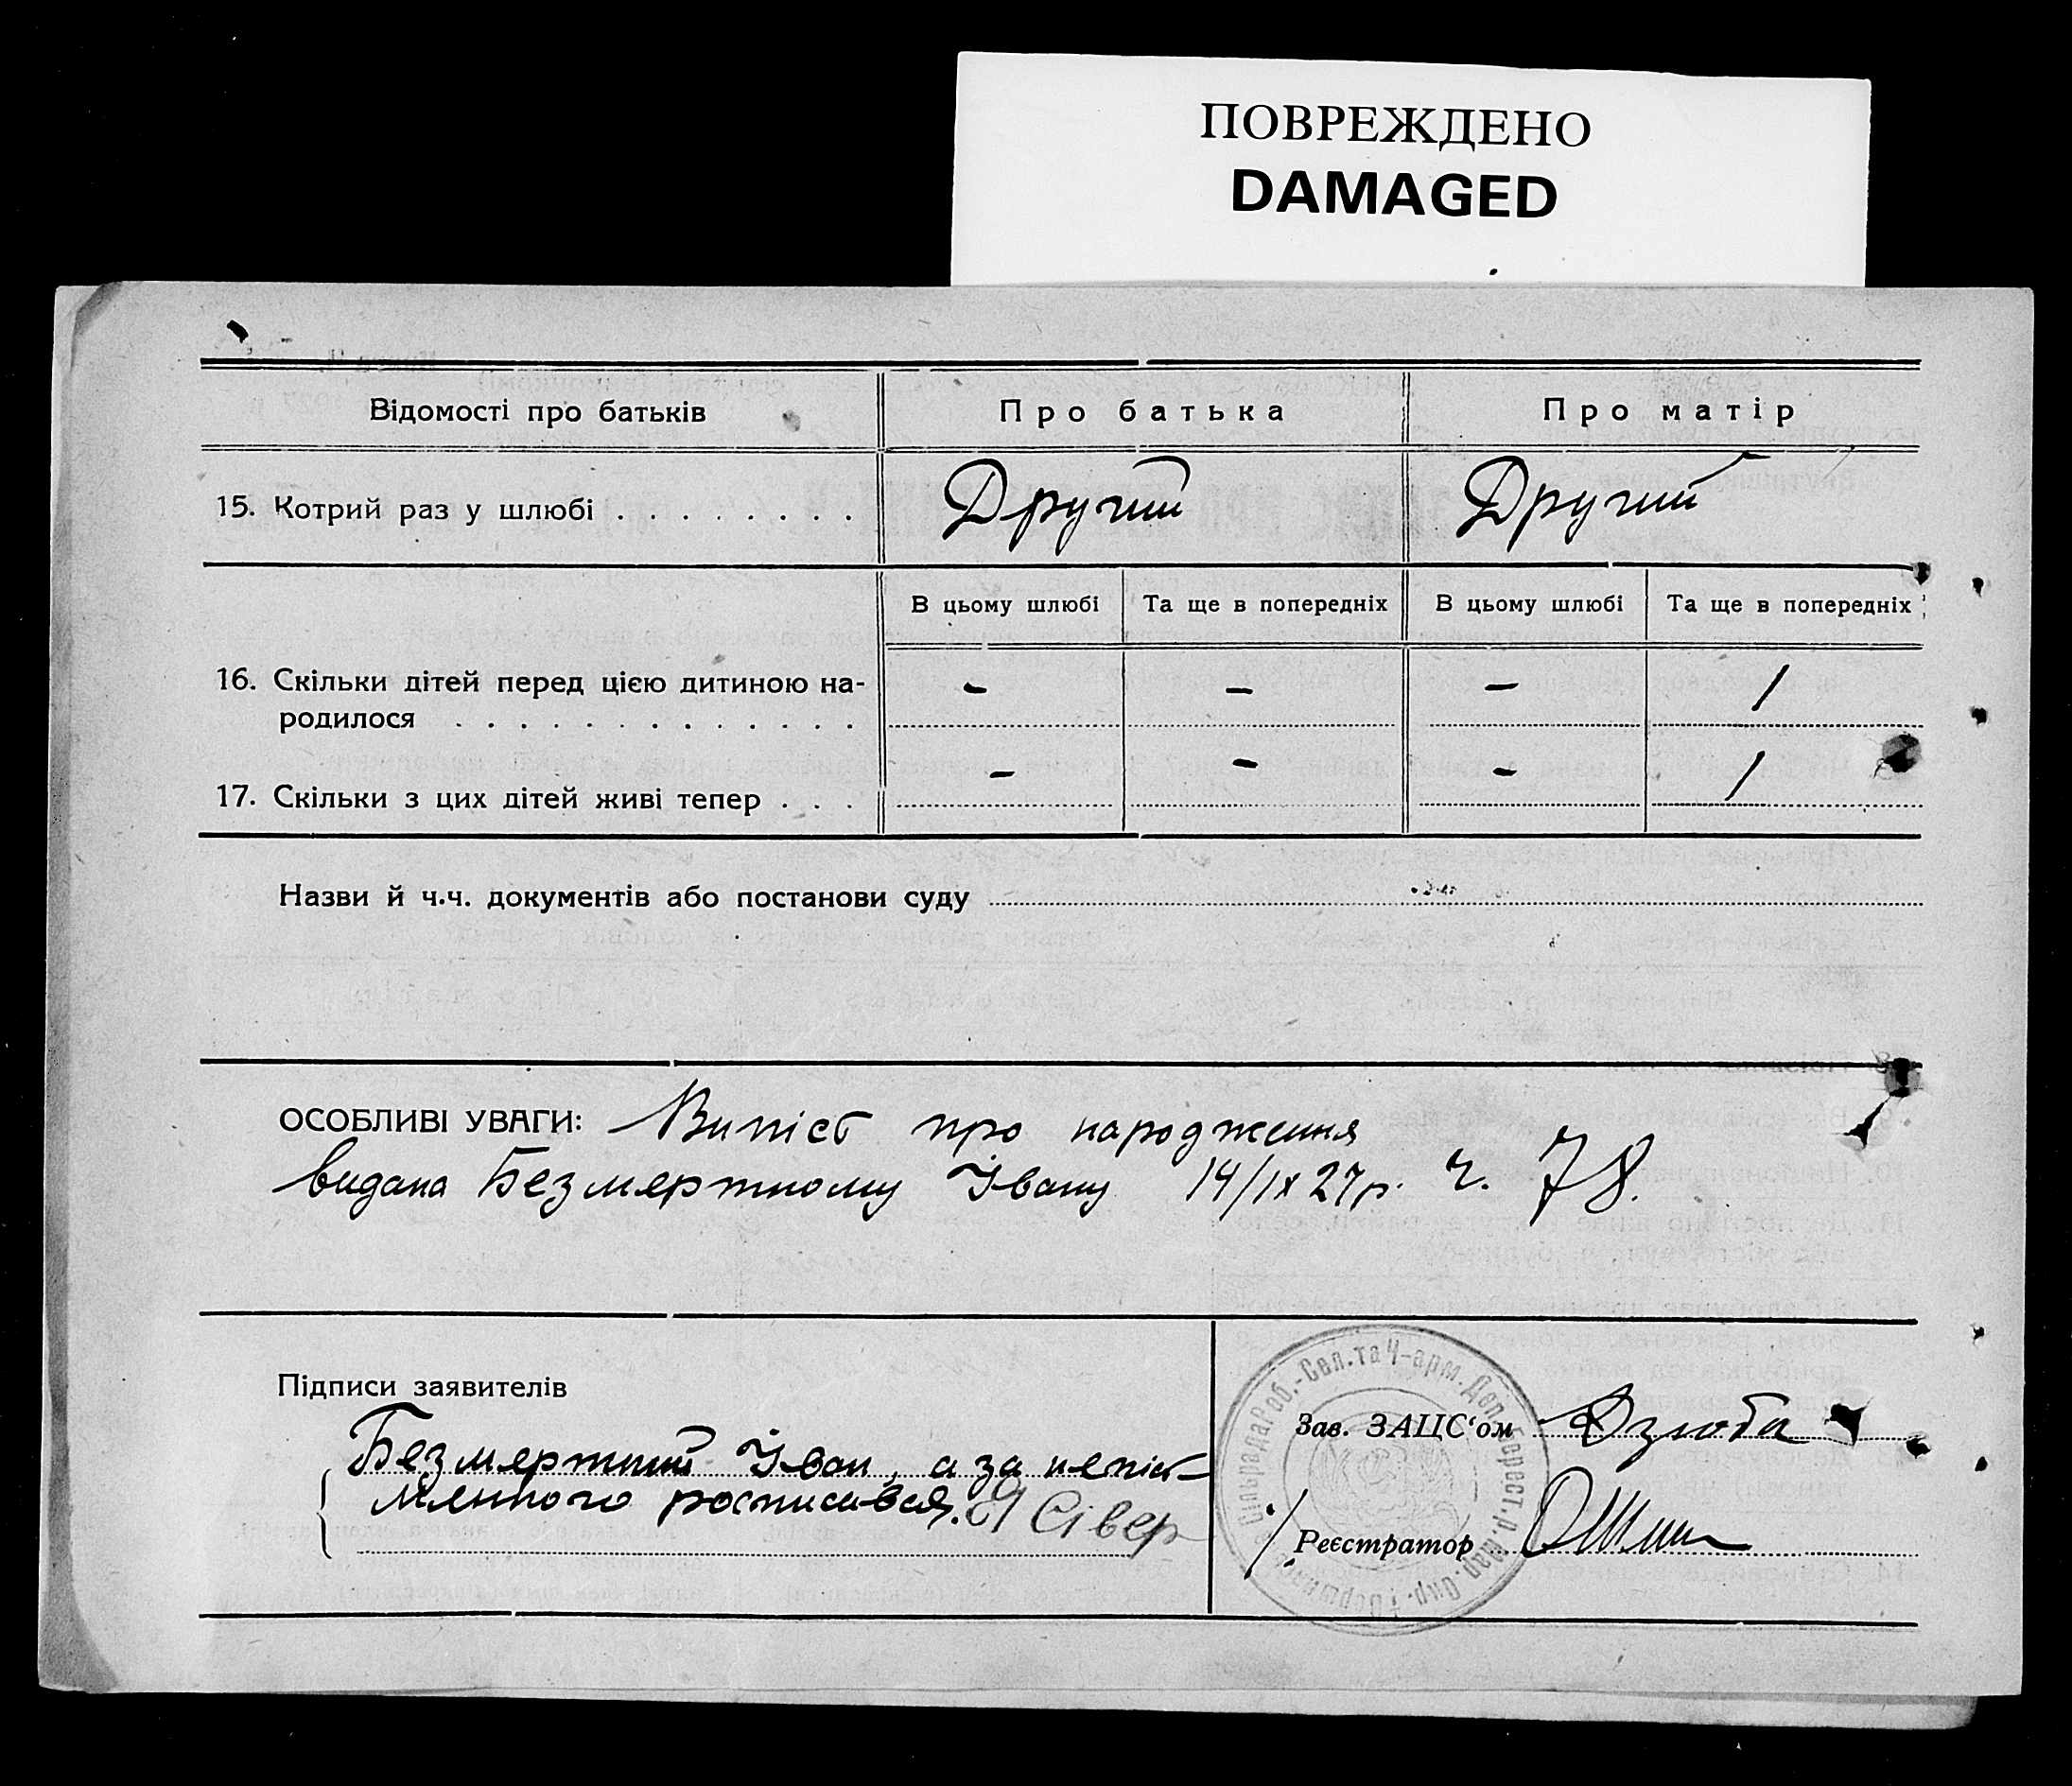 ПОВРЕЖДЕНО
DAMAGED
Відомості про батьків Про батька Про матір
15. Котрий раз у шлюбі . . . . . . . . Другий Другий
В цьому шлюбі Та ще в попередніх В цьому шлюбі Та ще в попередніх
16. Скільки дітей перед цією дитиною на-
родилося . . . . . . . . . . . . . - - - 1
17. Скільки з цих дітей живі тепер . . . - - - 1
Назви й ч.ч. документів або постанови суду
ОСОБЛИВІ УВАГИ: Випіст про народження
видана Безмертному Івану 14/IX 27р. ч. 78.
Підписи заявителів
Безмертний Іван, а за непісь-
менного росписався. Сівер
Сільрада Роб.-Сел. та Ч-арм. Деп. Берест. р. Мар. Окр.
Зав. ЗАЦС'ом Дзюба
Реєстратор